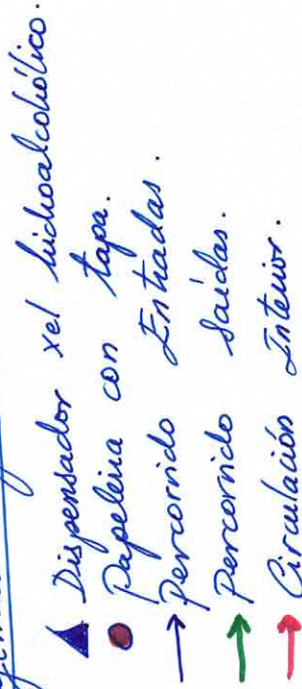 Dispensador xel hidroalcohólico.
Papeleira con tapa.
Percorrido Entradas.
Percorrido Saídas.
Circulación Interior.